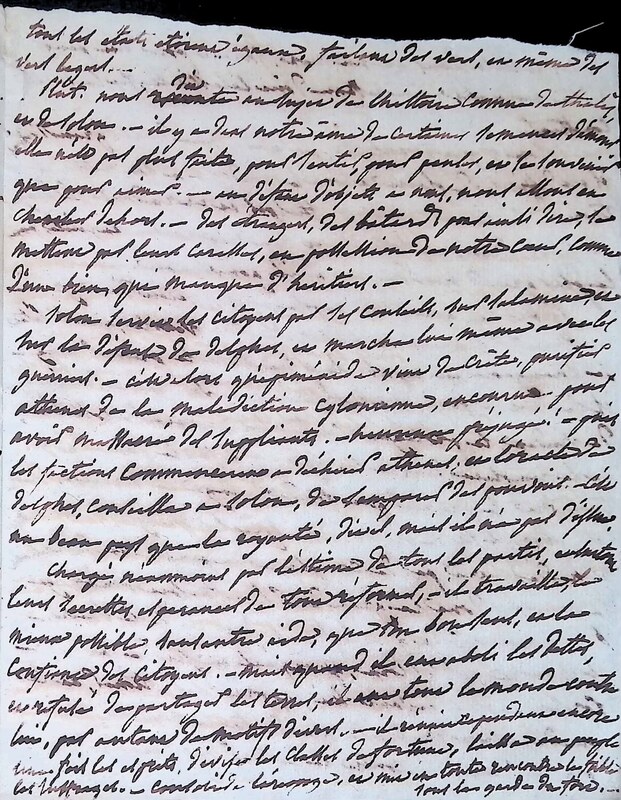 tous les états étoient égaux, faisant des vers, et même des
vers légers. —
Plut. nous dit au sujet de l'histoire comme de thalès,
et de solon. — il y a dans notre âme de certaines semences d'amour
elle n'est pas plus faite, pour sentir, pour penser, et se souvenir
que pour aimer. — au défaut d'objets à nous, nous allons en
chercher dehors. — des étrangers, des bâtards pour ainsi dire, se
mettent par leurs caresses, en possession de notre coeur, comme
d'un bien, qui manque d'héritiers. —
Solon servit les citoyens par ses conseils, sur salamine, et
sur la défense de delphes, et marcha lui même avec les
guerriers. — c'est alors qu'épiménide vint de crète, purifier
athènes de la malédiction cylonienne, encourue pour
avoir massacré des suppliants. — heureux préjugé! — puis
les factions commencèrent à déchirer athènes, et l'oracle de
delphes, conseilla à solon, de s'emparer du pouvoir. — C'est
un beau pays que la royauté, dit-il, mais il n'a pas d'issue,
Chargé, néanmoins par l'estime de tous les partis,
leurs secrettes espérances de tout réformer, — il travailla, le
mieux possible, sans autre aide, que son bon sens, et la
confiance des citoyens. — mais quand il eut aboli les dettes,
et refusé de partager les terres, il eut tout le monde contre
lui, par autant de motifs divers. — il réunit cependant encore
tous les esprits, divisa les classes de fortune, laissa au peuple
les suffrages. — Consolida l'aréopage, et mit en toute rencontre le faible
sous la garde du fort. —